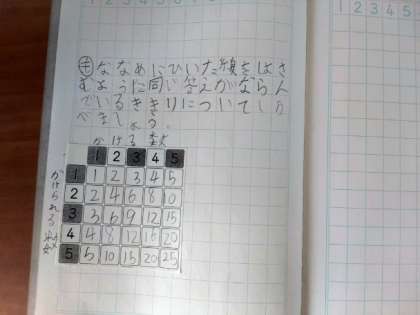 1 2 3 4 5
も ななめにひいた線をはさ
むように同じ答えがならん
でいるききりについてしら
べましょう。
かける数
1 2 3 4 5
1 1 2 3 4 5
2 2 4 6 8 10
3 3 6 9 12 15
4 4 8 12 16 20
5 5 10 15 20 25
かけられる数